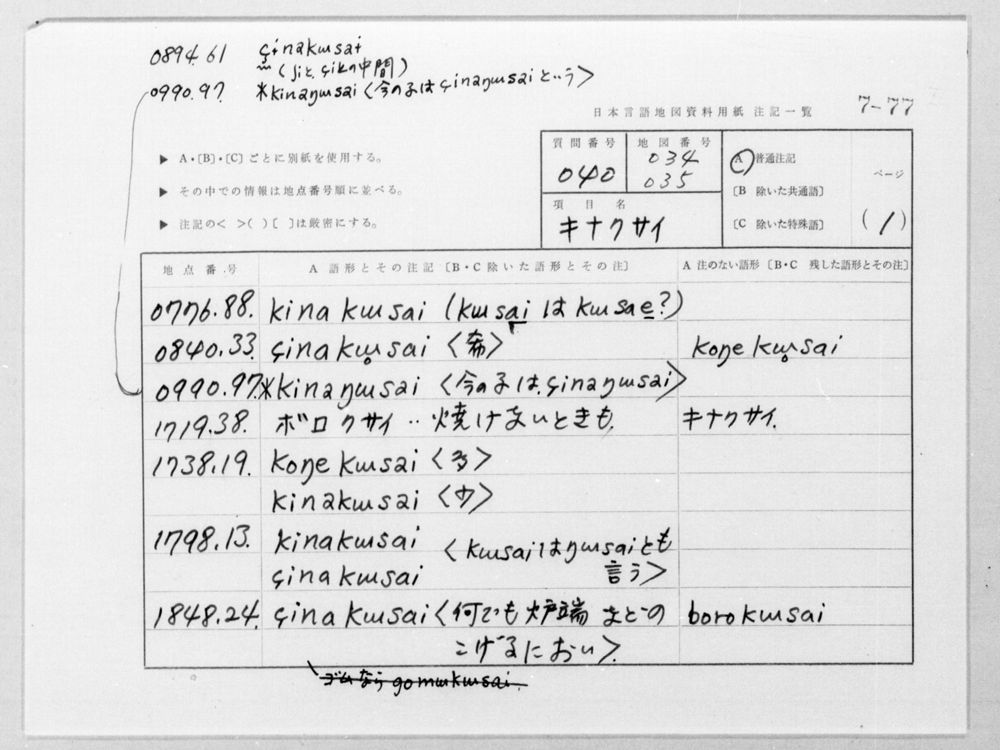 0894.61 çɨnakɯsaɨ
(ʃiと, çikの中間)
0990.97 *kinaŋɯsai〈今の子はçinaŋɯsaiという〉
日本言語地図資料用紙 注記一覧 7-77
▶ A・〔B〕・〔C〕ごとに別紙を使用する。
▶ その中での情報は地点番号順に並べる。
▶ 注記の< >( )〔 〕は厳密にする。
質問番号 地図番号
040 034
035
項目名
キナクサイ
A 普通注記
〔B 除いた共通語〕
〔C 除いた特殊語〕
ページ
(1)
地点番号 A 語形とその注記〔B・C 除いた語形とその注〕 A 注のない語形〔B・C 残した語形とその注〕
0776.88. kinakɯsai (kɯsaiはkɯsae?)
0840.33. çinakɯ̥sai〈希〉 koŋekɯ̥sai
0990.97. *kinaŋɯsai〈今の子は, çinaŋɯsai〉
1719.38. ボロクサイ‥焼けないときも キナクサイ.
1738.19. koŋekɯsai〈多〉
kinakɯsai〈少〉
1798.13. kinakɯsai 〈kɯsaiはŋɯsaiとも
çinakɯsai 言う〉
1848.24. çinakɯsai〈何でも炉端などの borokɯsai
こげるにおい〉.
ゴムならgomɯkɯsai.